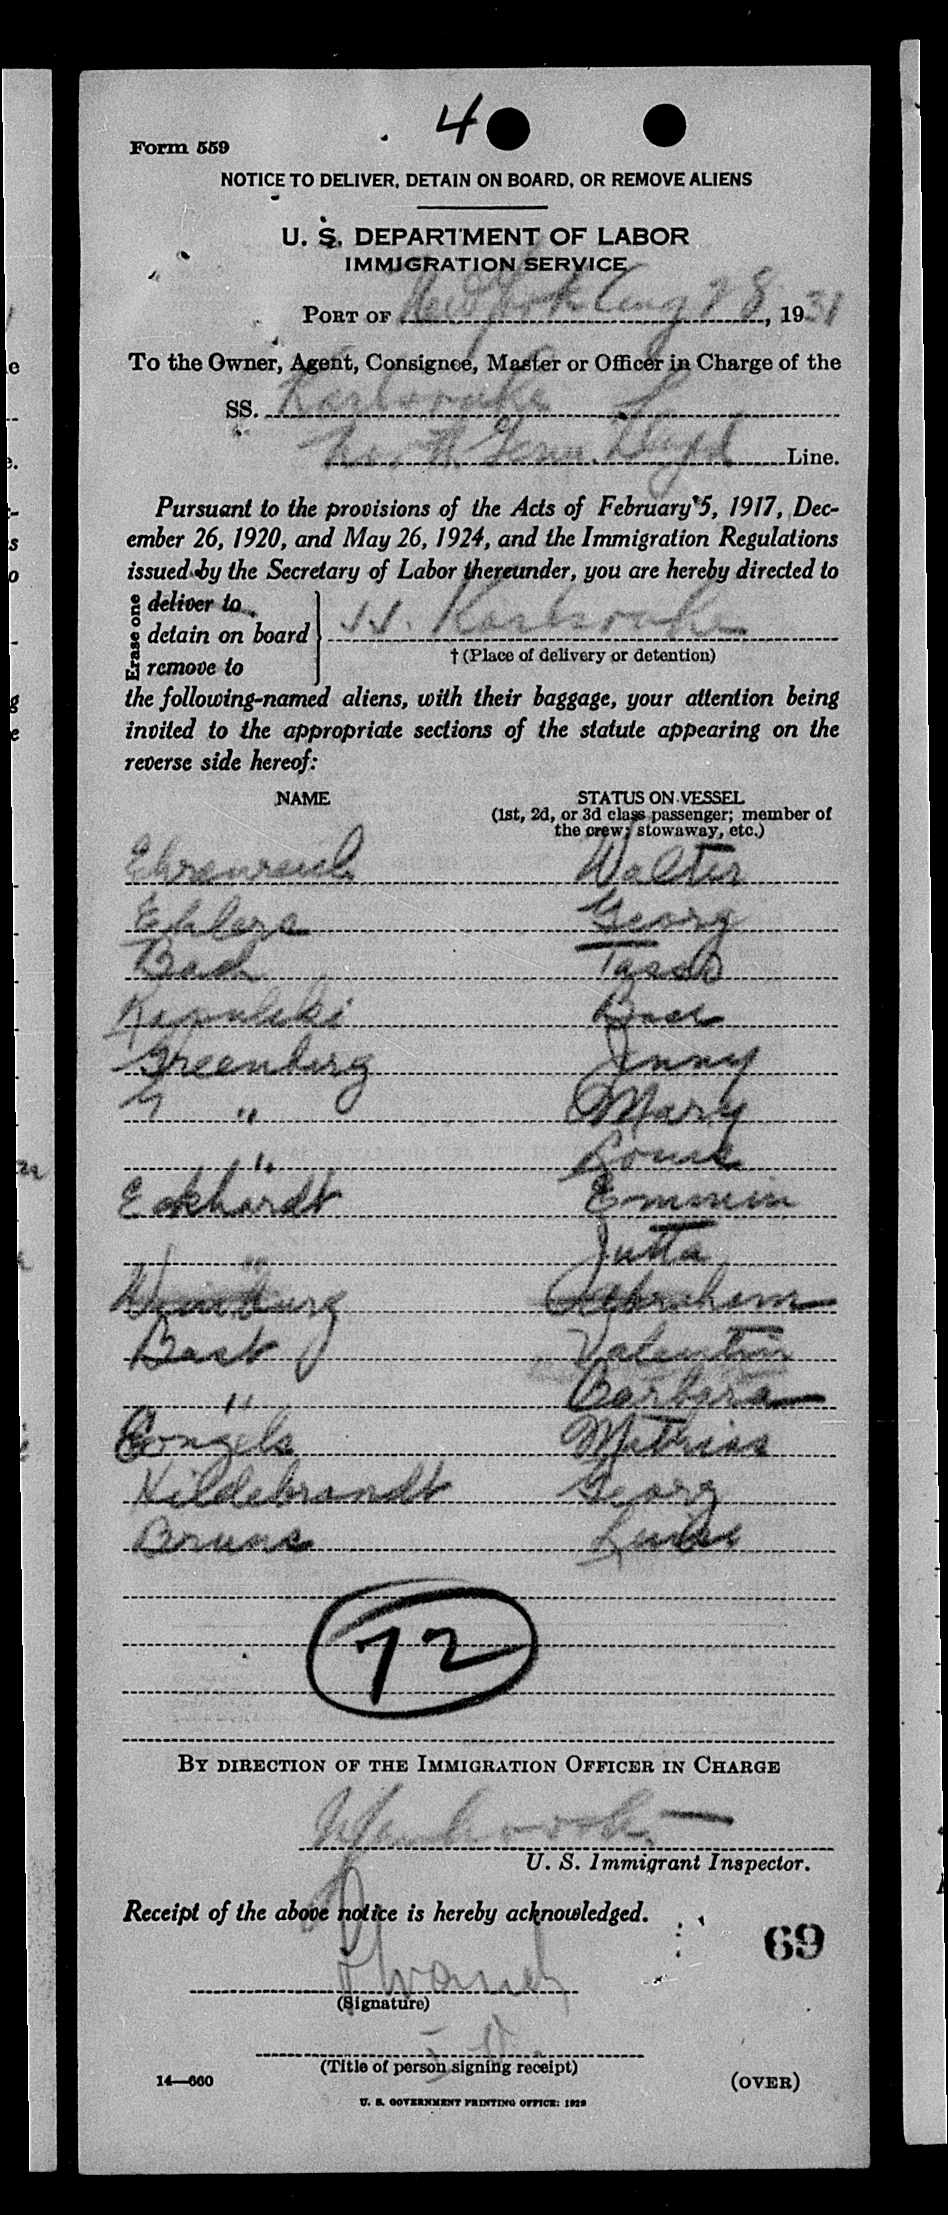 4
Form 559
NOTICE TO DELIVER, DETAIN ON BOARD, OR REMOVE ALIENS
U. S. DEPARTMENT OF LABOR
IMMIGRATION SERVICE
PORT OF New York Aug 28, 1931
To the Owner, Agent, Consignee, Master or Officer in Charge of the
SS. Karlsruhe
North Germ. Lloyd Line.
Pursuant to the provisions of the Acts of February 5, 1917, Dec-
ember 26, 1920, and May 26, 1924, and the Immigration Regulations
issued by the Secretary of Labor thereunder, you are hereby directed to
Erase one
deliver to
detain on board
remove to
Karlsruhe
† (Place of delivery or detention)
the following-named aliens, with their baggage, your attention being
invited to the appropriate sections of the statute appearing on the
reverse side hereof:
NAME STATUS ON VESSEL
(1st, 2d, or 3d class passenger; member of
the crew; stowaway, etc.)
Ehrenreich Walter
Ehlers Georg
Bach Tasso
Greenberg Jenny
" Mary
" Louis
Eckhardt Emmin
" Jutta
Abraham
Bast Valentin
" Barbara
Mathias
Hildebrandt Georg
Bruns
72
BY DIRECTION OF THE IMMIGRATION OFFICER IN CHARGE
U. S. Immigrant Inspector.
Receipt of the above notice is hereby acknowledged.
69
(Signature)
(Title of person signing receipt)
14—660 (OVER)
U. S. GOVERNMENT PRINTING OFFICE: 1929